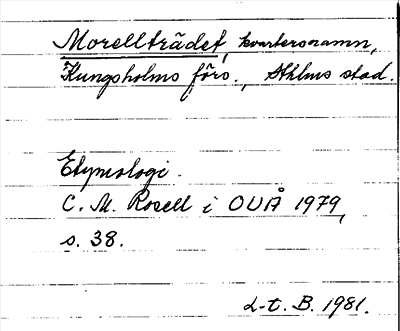 Morellträdet, kvartersnamn,
Kungsholms förs., Sthlms stad.
Etymologi.
C. M. Rosell i OUÅ 1979,
s. 38.
L-t. B. 1981.